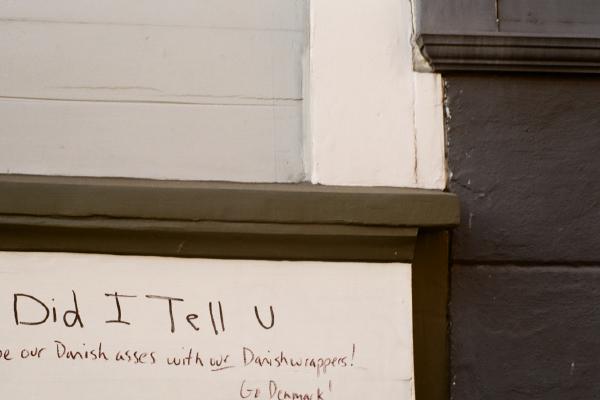 Did I Tell U
our Danish asses with our Danishwrappers!
Go Denmark!